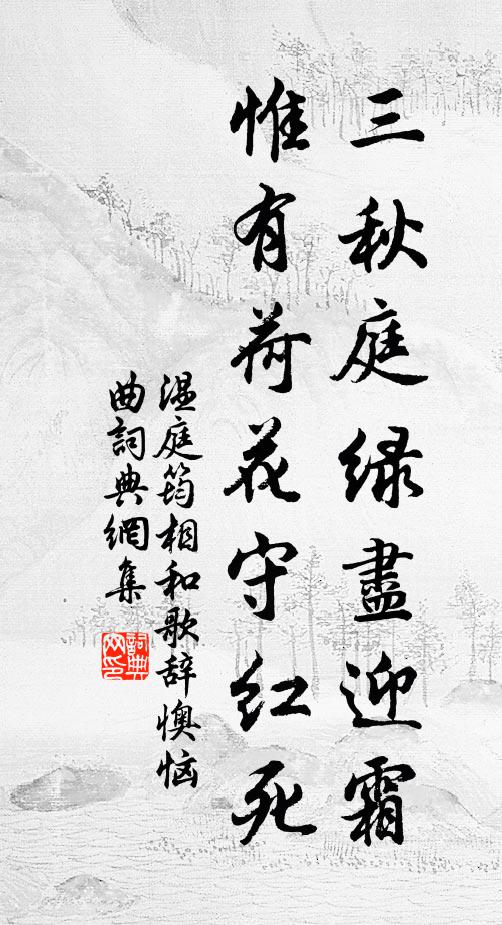 三秋庭绿盡迎霜
惟有荷花守红死
温庭筠相和歌辞懊恼
曲詞典網集
詞典网印